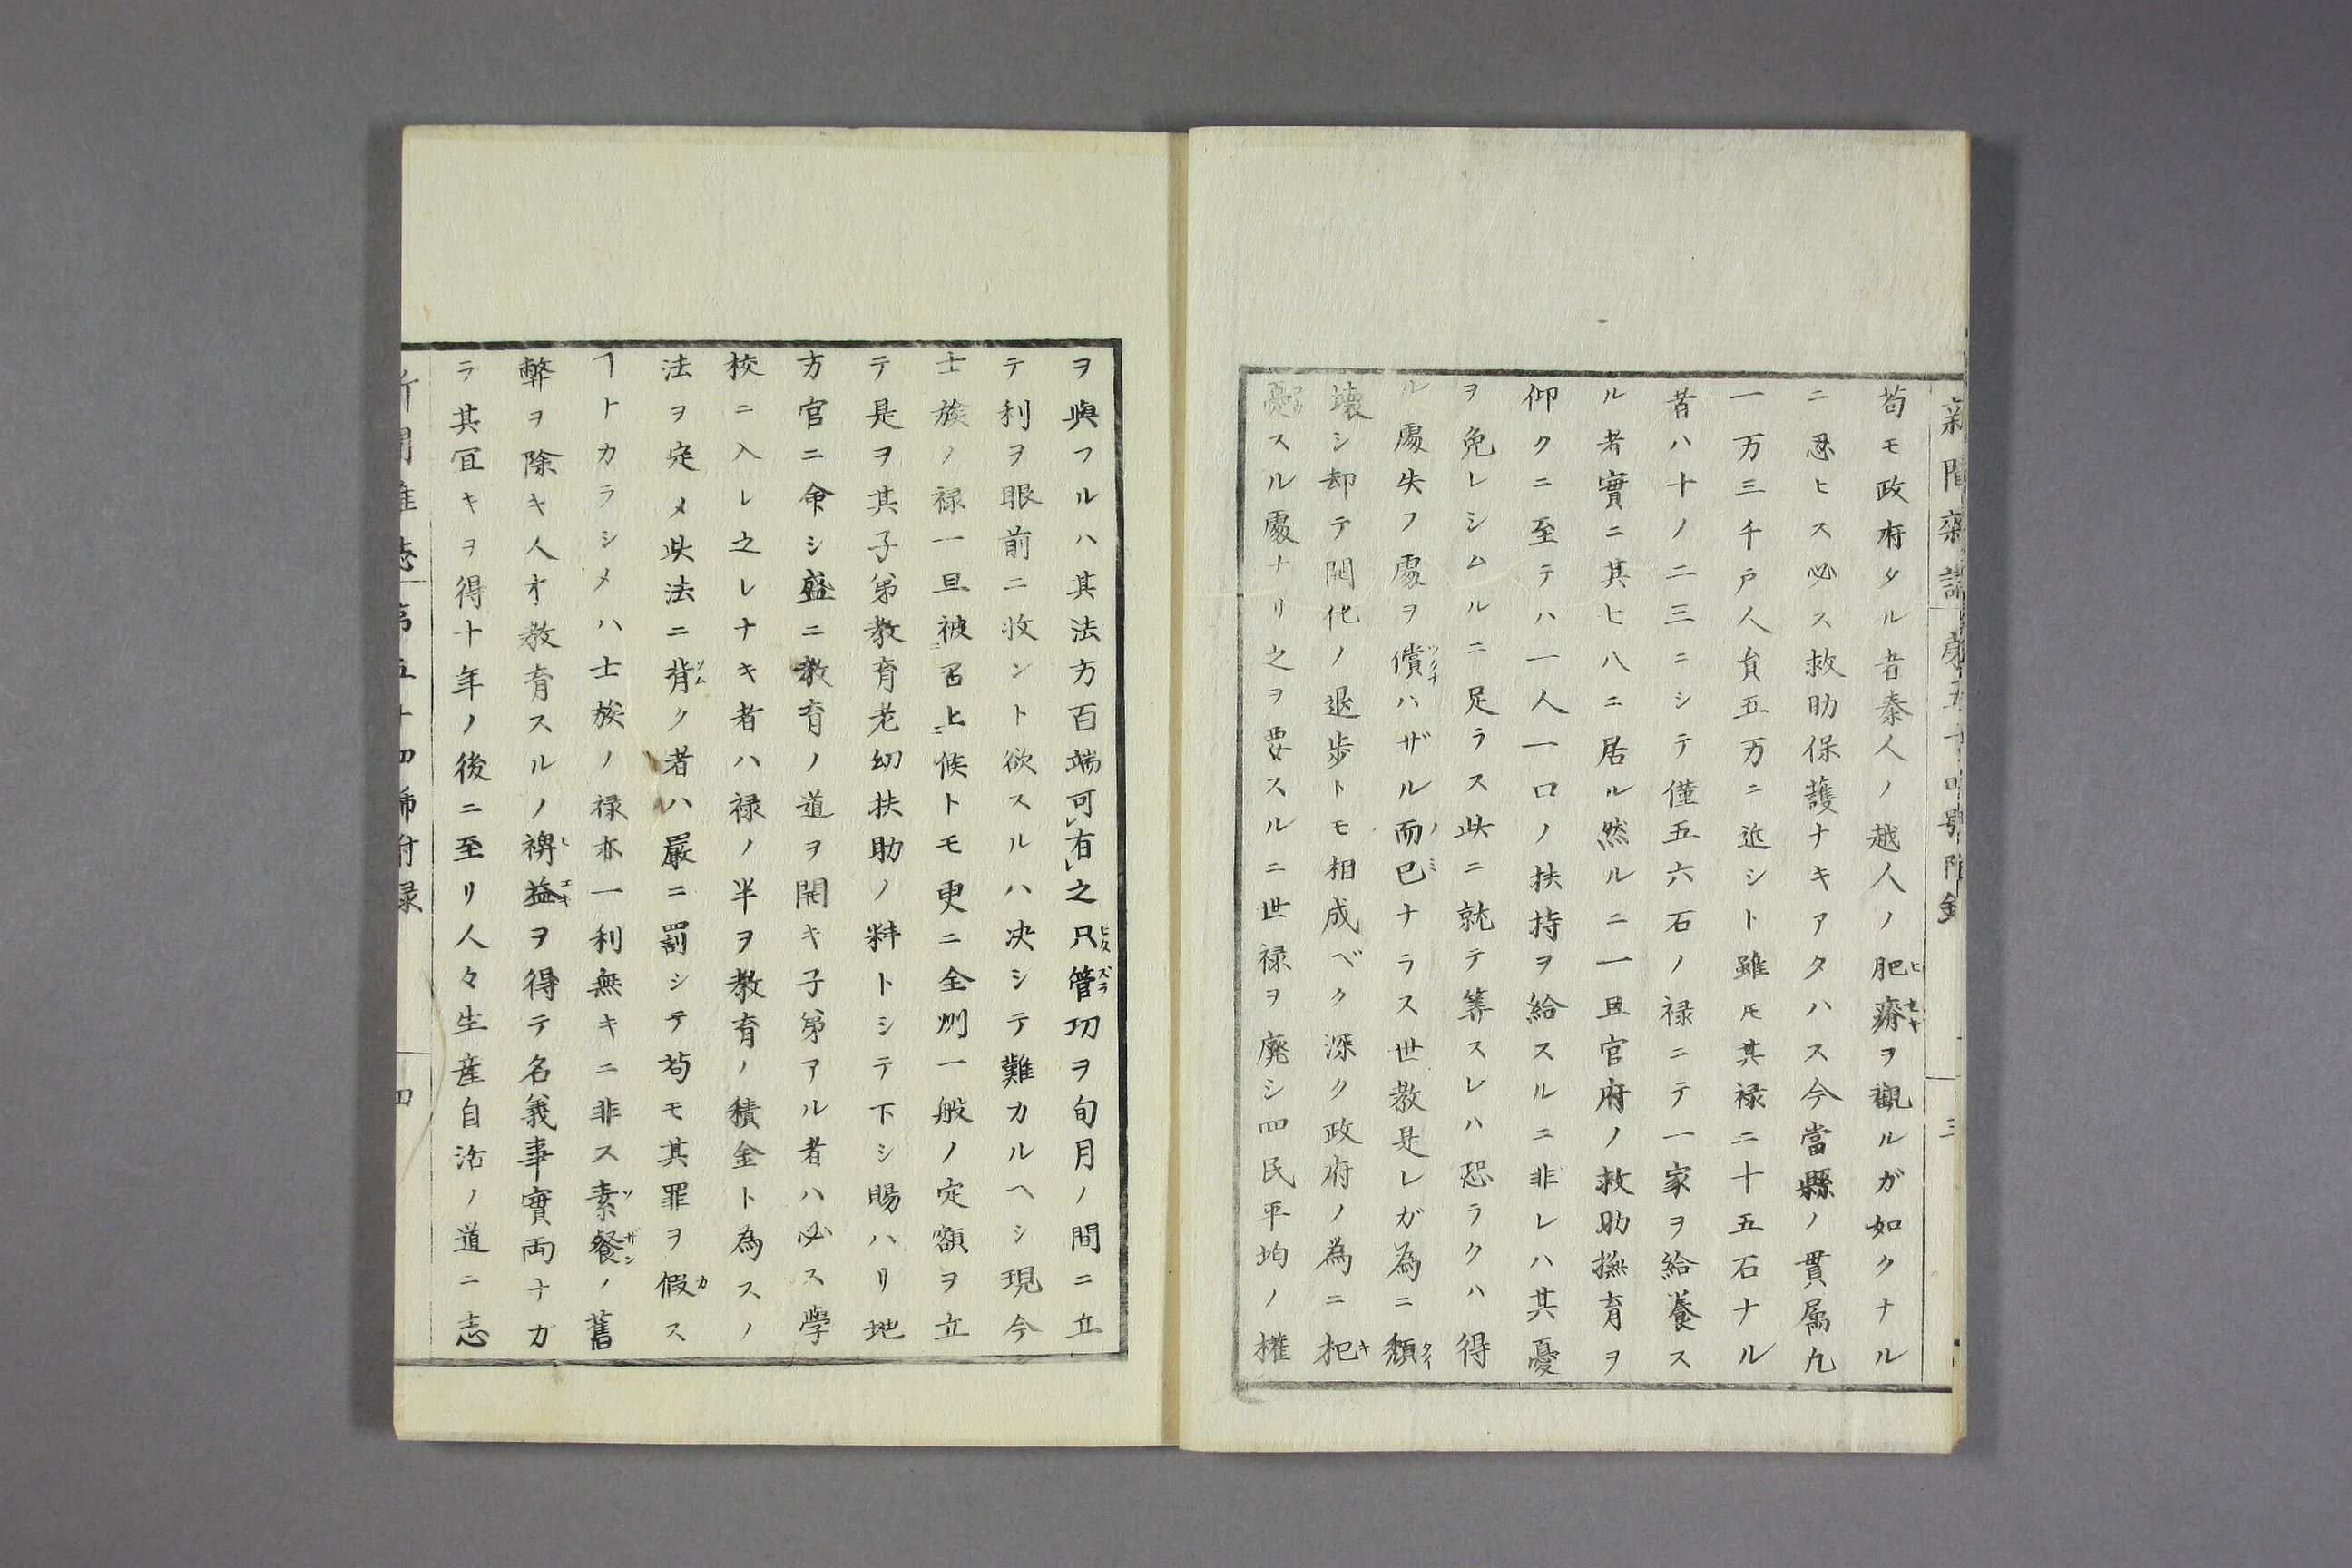 新聞雑誌 第五十四號附録 三
苟モ政府タル者秦人ノ越人ノ肥瘠ヲ觀ルガ如クナル
ニ忍ヒス必ス救助保護ナキアタハス今當縣ノ貫属凢
一万三千戸人負五万ニ近シト雖モ其禄二十五石ナル
者ハ十ノ二三ニシテ僅五六石ノ禄ニテ一家ヲ給養ス
ル者實ニ其七八ニ居ル然ルニ一旦官府ノ救助撫育ヲ
仰クニ至テハ一人一口ノ扶持ヲ給スルニ非レハ其憂
ヲ免レシムルニ足ラス此ニ就テ筭スレハ恐ラクハ得
ル處失フ處ヲ償ハザル而已ナラス世教是レガ為ニ頽
壊シ却テ開化ノ退歩トモ相成ベク深ク政府ノ為ニ杞
憂スル處ナリ之ヲ要スルニ世禄ヲ廃シ四民平均ノ權
ヲ與フルハ其法方百端可有之只管功ヲ旬月ノ間ニ立
テ利ヲ眼前ニ收ント欲スルハ决シテ難カルヘシ現今
士族ノ禄一旦被召上候トモ更ニ全州一般ノ定額ヲ立
テ是ヲ其子弟教育老幼扶助ノ料トシテ下シ賜ハリ地
方官ニ命シ盛ニ教育ノ道ヲ開キ子弟アル者ハ必ス學
校ニ入レ之レナキ者ハ禄ノ半ヲ教育ノ積金ト為スノ
法ヲ定メ此法ニ背ク者ハ嚴ニ罰シテ苟モ其罪ヲ假ス
ヿトカラシメハ士族ノ禄亦一利無キニ非ス素餐ノ舊
弊ヲ除キ人才教育スルノ裨益ヲ得テ名義事實両ナガ
ラ其冝キヲ得十年ノ後ニ至リ人々生産自活ノ道ニ志
新聞雑誌 第五十四號附録 四